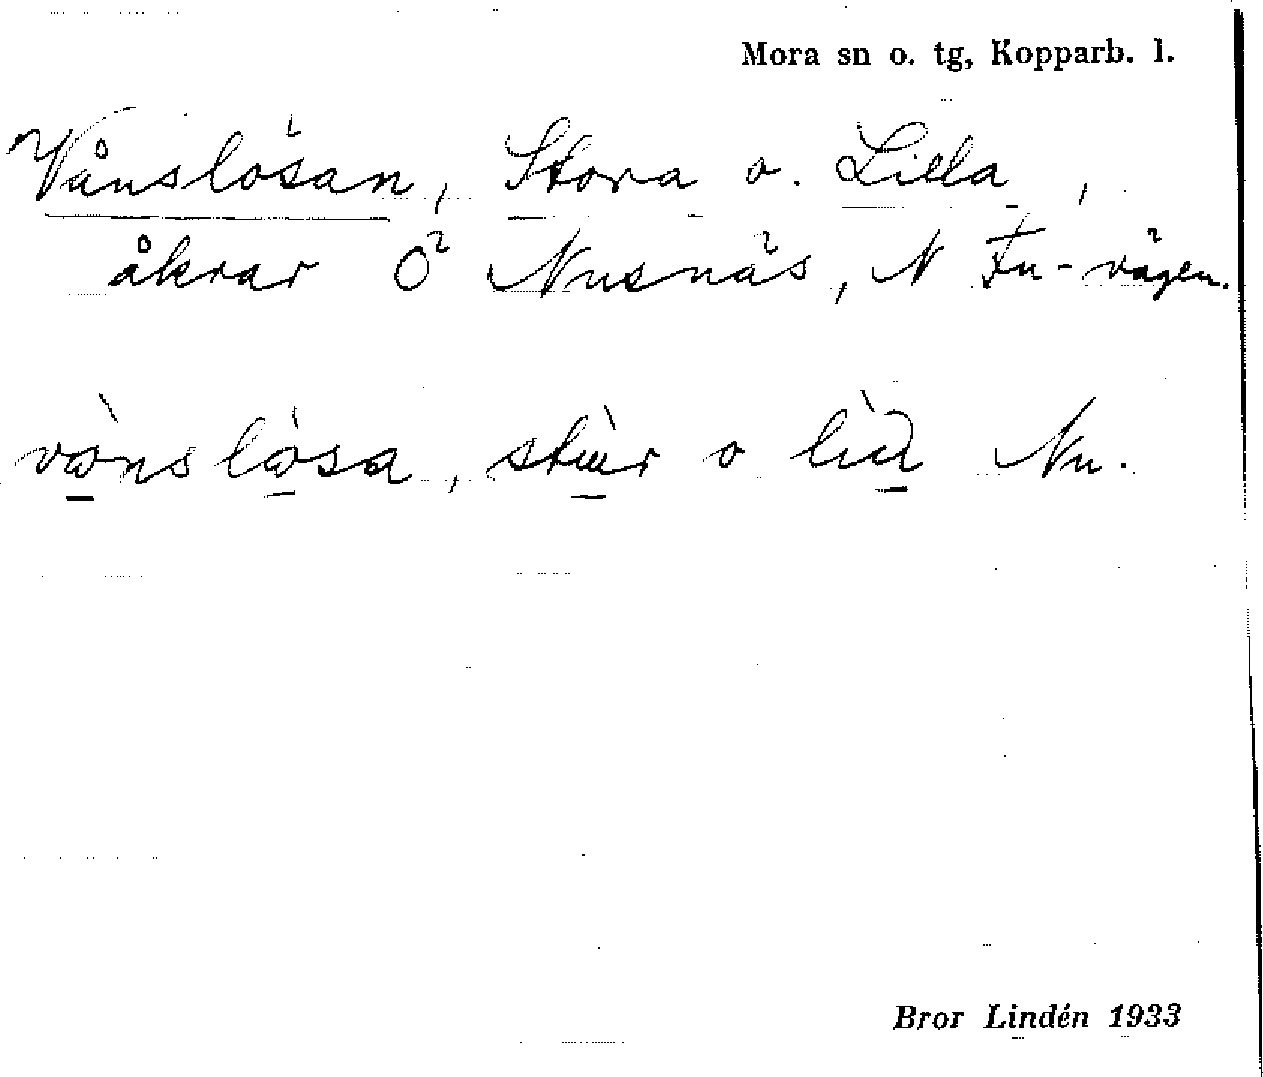 Mora sn o. tg, Kopparb. l.
Vånslösan, Stora o. Lilla,
åkrar Ö Nusnäs, N Fu-vägen.
Nu.
Bror Lindén 1933